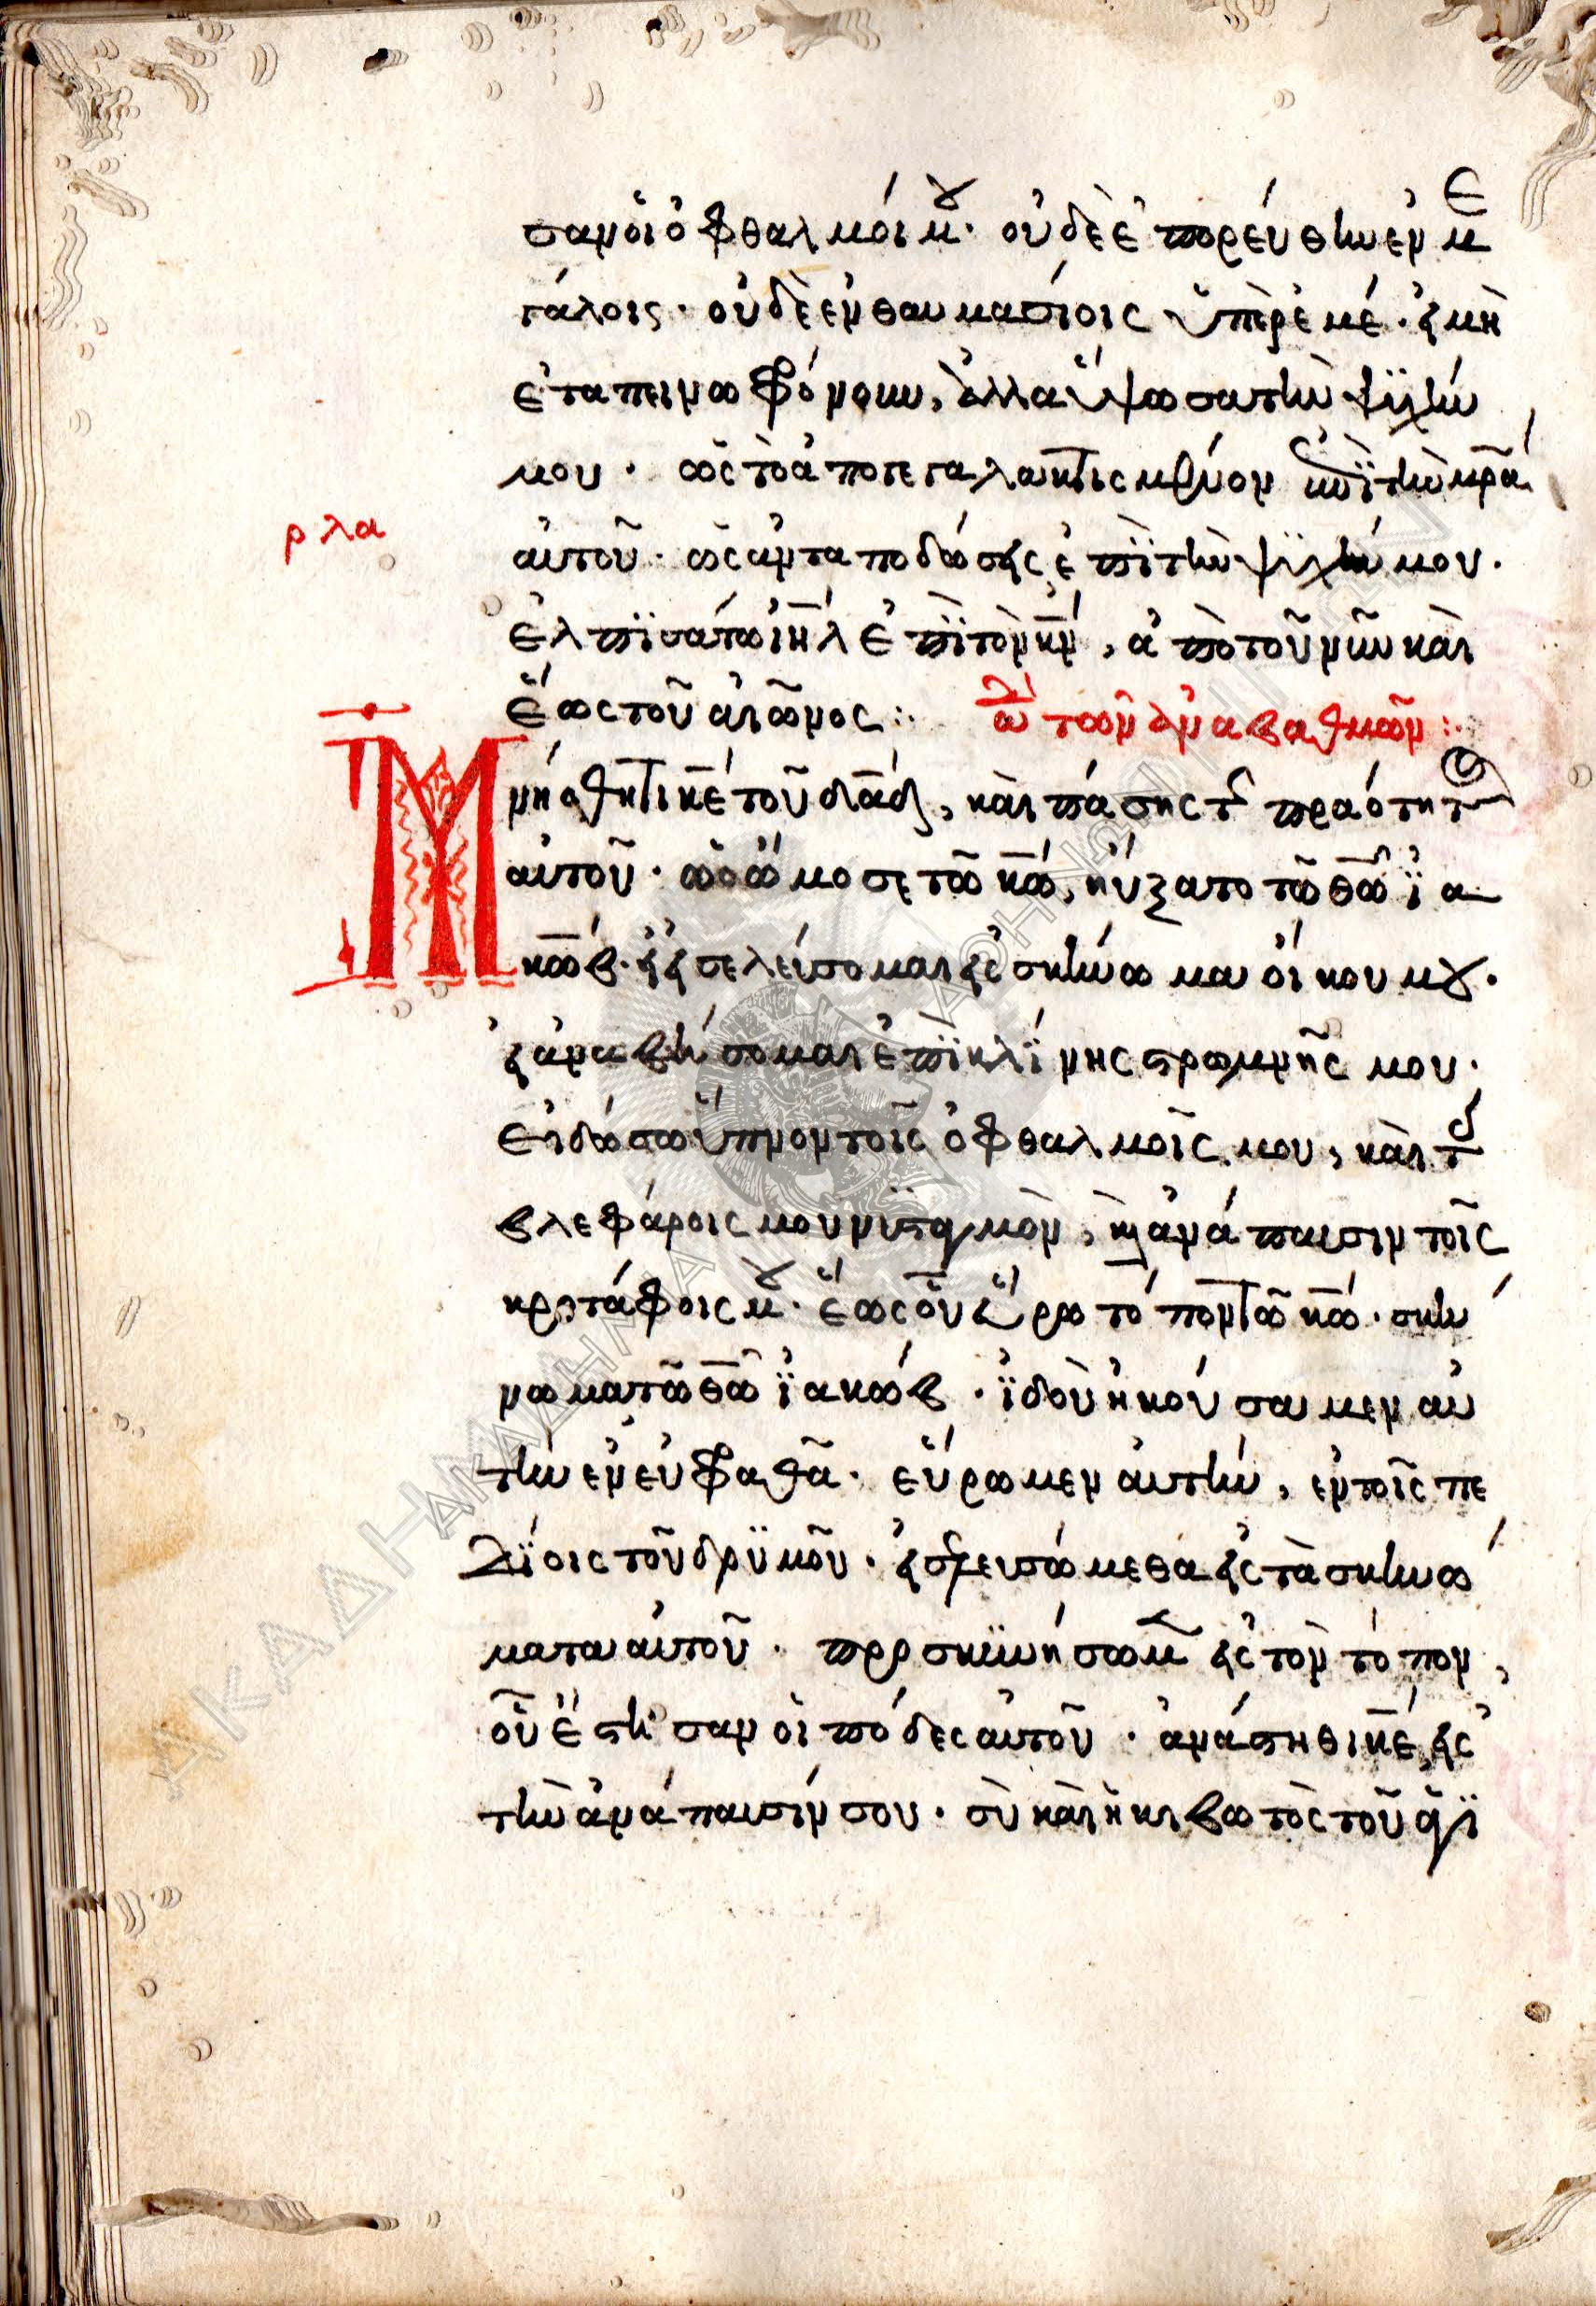 σαν οἱ ὀφθαλμοί μου· οὐδὲ ἐπορεύθην ἐν με
γάλοις· οὐδὲ ἐν θαυμασίοις ὑπὲρ ἐμέ· εἰ μὴ
ἐταπεινωφρόνουν, ἀλλὰ ὕψωσα τὴν ψϋχήν
μου· ὡς τὸ ἀπογεγαλακτισμένον ἐπῒ τὴν μρ̅α
αὐτοῦ· ὡς ἀνταποδώσεις ἐπῒ τὴν ψϋχήν μου·
ἐλπϊσάτω ιη̅λ ἐπῒ τὸν κν̅, ἀπὸ τοῦ νῦν καὶ
ἕως τοῦ αἰῶνος:· ὠδὴ τῶν ἀναβαθμῶν:·
ρλα
Μνήσθητι κε̅ τοῦ δα̅δ, καὶ πάσης τῆς πραότητος
αὐτοῦ· ὡς ὤμοσε τῶ κω̅, ηὔξατο τῶ θω̅ ϊα
κώβ· εἰ εἰσελεύσομαι εἰς σκήνωμα οἴκου μου·
εἰ ἀναβήσομαι ἐπῒ κλΐνης στρωμνῆς μου·
εἰ δώσω ὕπνον τοῖς ὀφθαλμοῖς μου, καὶ τοῖς
βλεφάροις μου νϋσταγμὸν, καὶ ἀνάπαυσιν τοῖς
κροτάφοις μου· ἕως οὗ εὕρω τόπον τῶ κω̅· σκή
νωμα τῶ θω̅ ϊακώβ· ϊδοὺ ἠκούσαμεν αὐ
τὴν ἐν εὐφραθᾶ· εὕρωμεν αὐτήν, ἐν τοῖς πε
δΐοις τοῦ δρϋμοῦ· εἰσελευσώμεθα εἰς τὰ σκηνώ
ματα αὐτοῦ· προσκϋνήσωμεν εἰς τὸν τόπον,
οὗ ἔστησαν οἱ πόδες αὐτοῦ· ἀνάστηθι κε̅, εἰς
τὴν ἀνάπαυσίν σου· σὺ καὶ ἡ κιβωτὸς τοῦ ἁγϊ